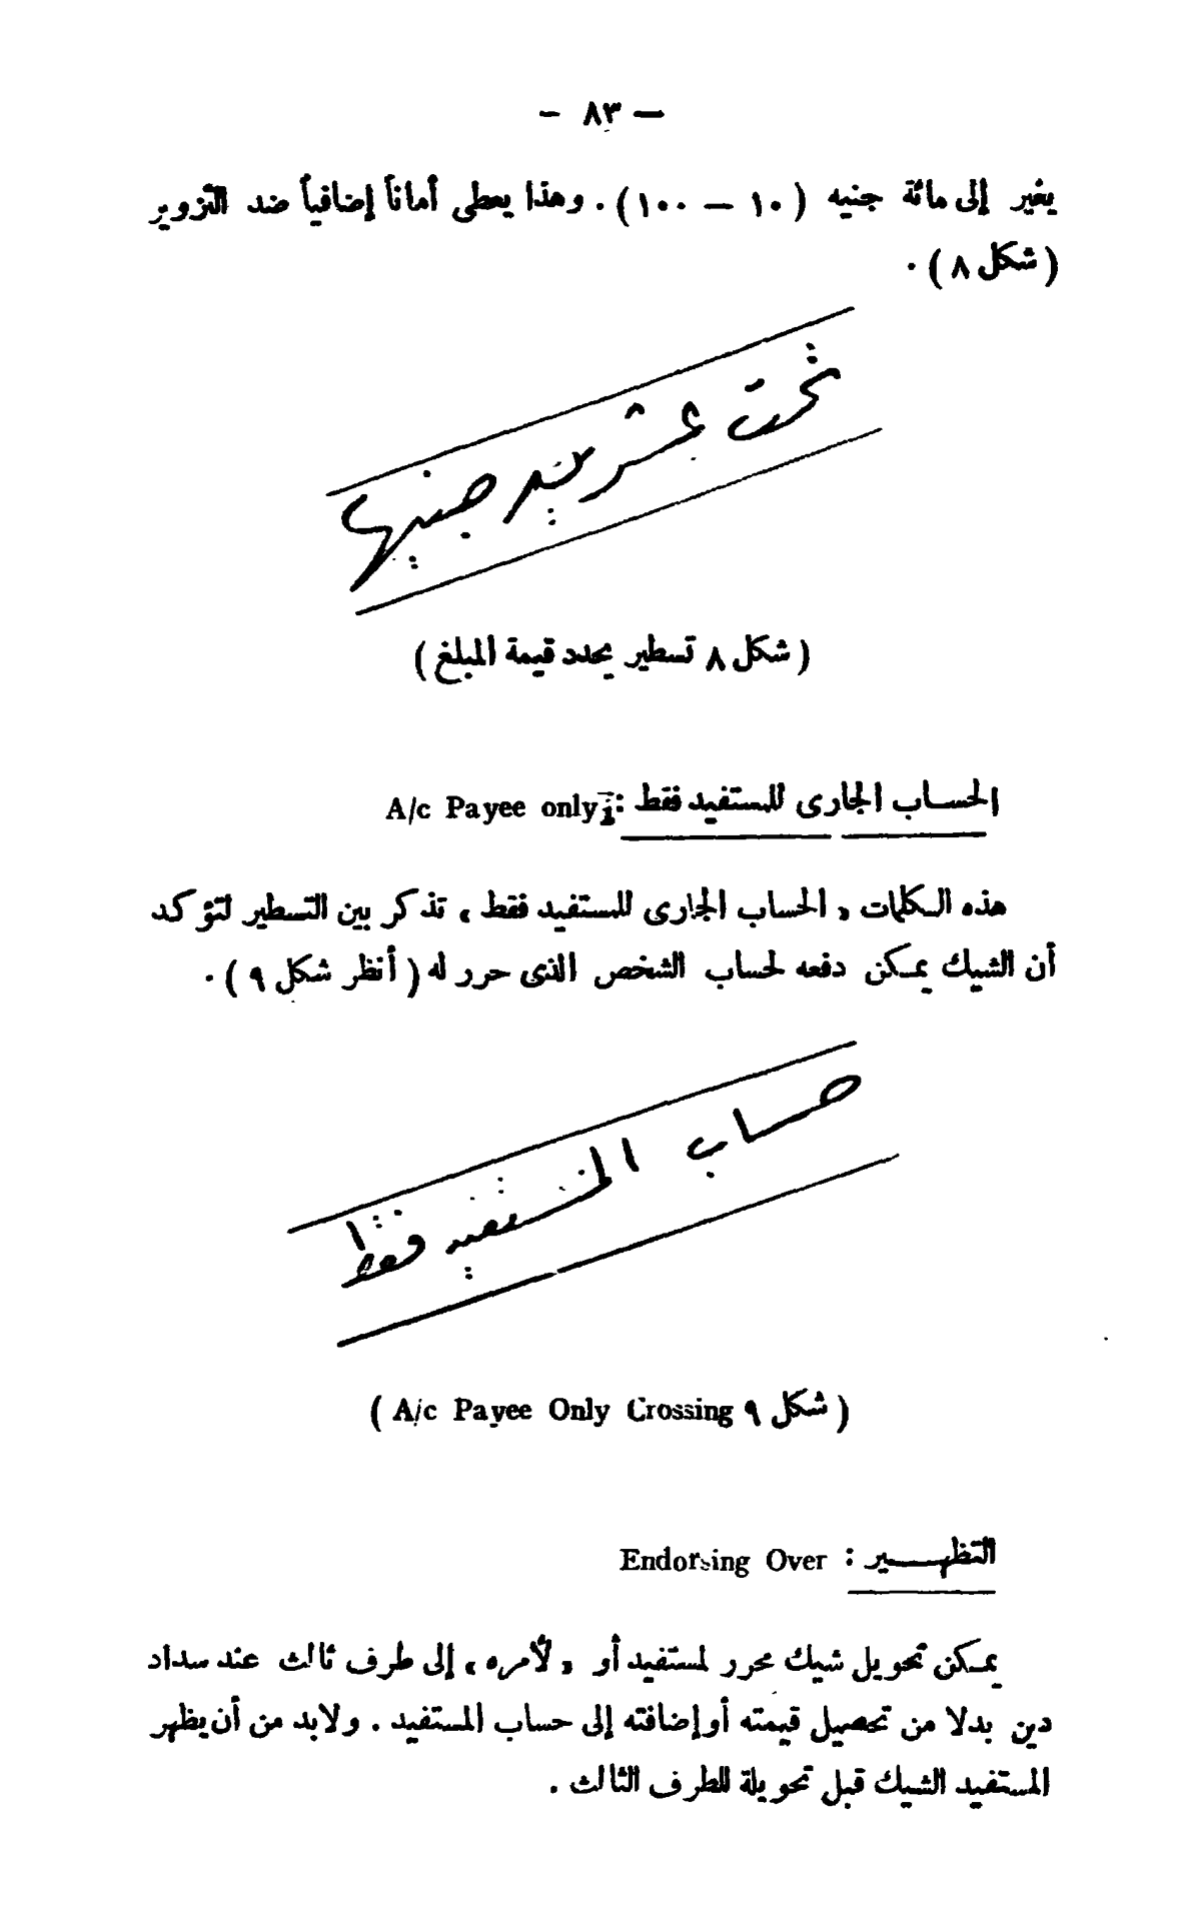 — ٨٣ —
يغير إلى مائة جنيه ( ١٠ — ١٠٠ ) . وهذا يعطى أماناً إضافياً ضد التزوير
( شكل ٨ ) .
تحت عشرين جنيها
( شكل ٨ تسطير يحدد قيمة المبلغ )
الحساب الجارى للمستفيد فقط : A/c Payee only
هذه الكلمات « الحساب الجارى للمستفيد فقط » تذكر بين التسطير لتؤكد
أن الشيك يمكن دفعه لحساب الشخص الذى حرر له ( أنظر شكل ٩ ) .
حساب المستفيد فقط
( شكل ٩ A/c Payee Only Crossing )
التظهير : Endorsing Over
يمكن تحويل شيك محرر لمستفيد أو « لأمره » إلى طرف ثالث عند سداد
دين بدلا من تحصيل قيمته أو إضافته إلى حساب المستفيد . ولابد من أن يظهر
المستفيد الشيك قبل تحويلة للطرف الثالث .